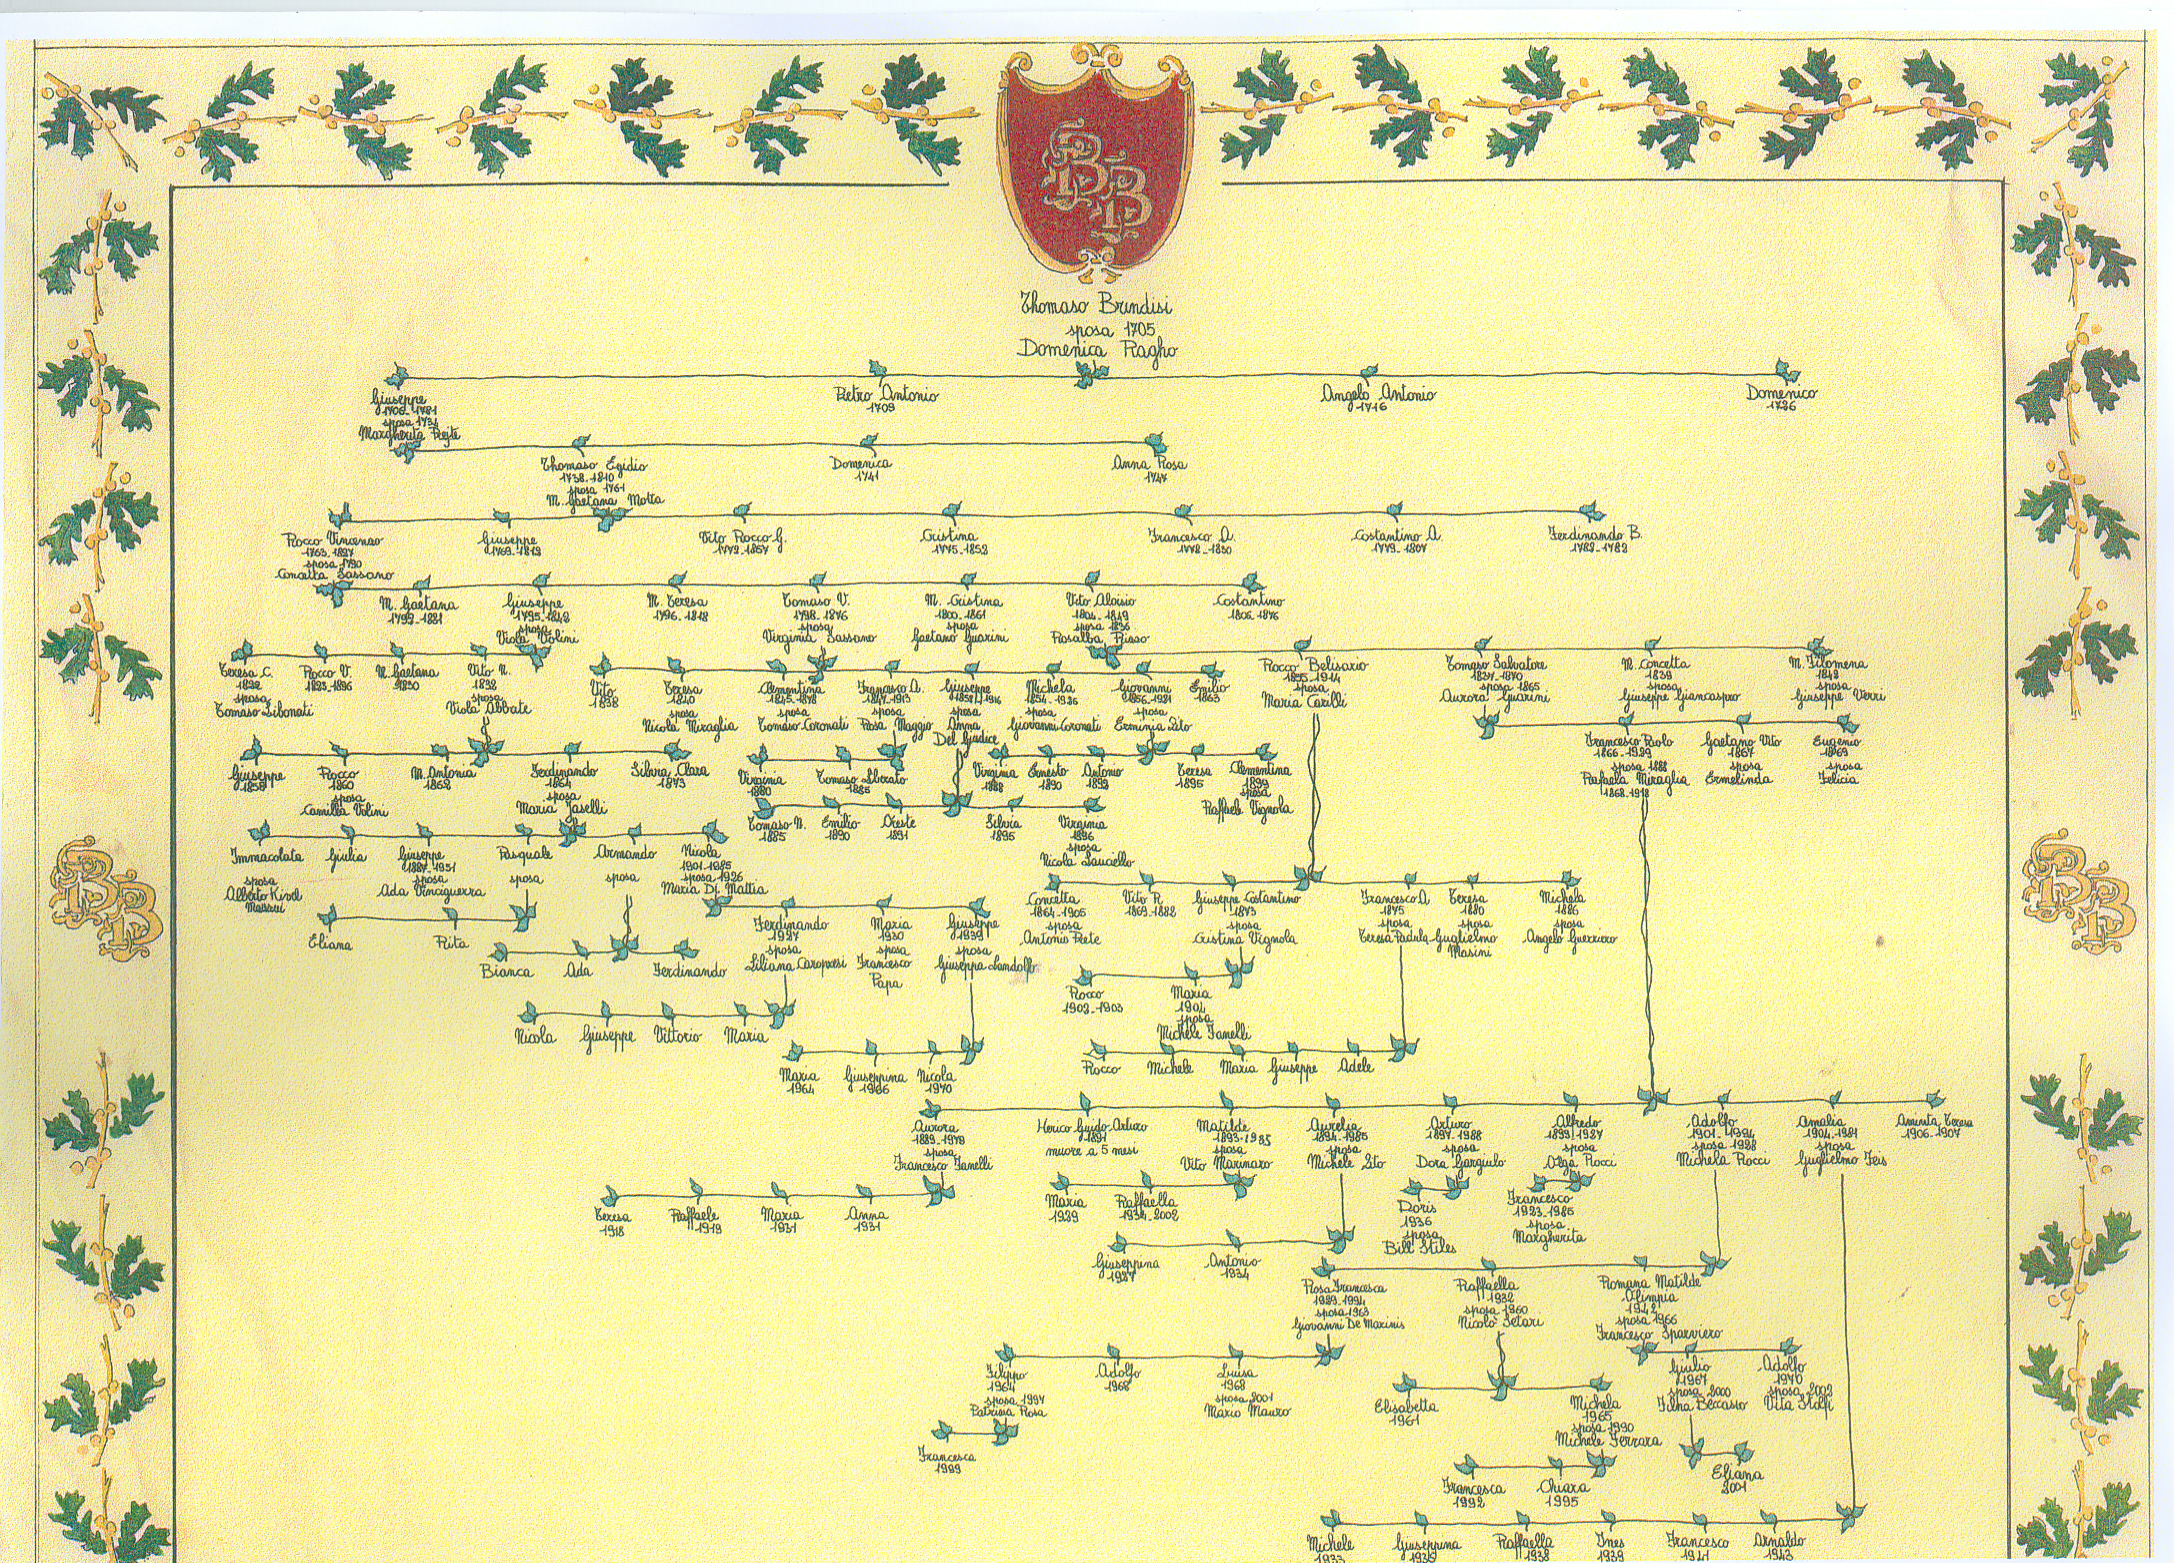 BB
Thomaso Brindisi
sposa 1705
Domenica Ragho
Giuseppe
sposa 1734
Margherita
Pietro Antonio
1709
Angelo Antonio
1716
Domenico
1726
Thomaso Egidio
1738-1810
sposa 1761
M. Gaetana Motta
Domenica
1741
Anna Rosa
1747
Rocco Vincenzo
1763-1827
sposa 1790
Concetta Sassano
Giuseppe
1769-1819
Vito Rocco G.
1772-1857
Cristina
1775-1852
Francesco A.
1778-1830
Costantino A.
1779-1807
Ferdinando B.
1782-1782
M. Gaetana
Giuseppe
1795-1848
sposa
Viola Volini
M. Teresa
1796-1818
Tomaso V.
1798-1876
sposa
Virginia Sassano
M. Cristina
1800-1861
sposa
Gaetano Guarini
Vito Aloisio
1804-1849
sposa 1836
Rosalba Risso
Costantino
1806-1876
Teresa C.
sposa
Tomaso Libonati
Rocco V.
M. Gaetana
1830
Vito N.
1832
sposa
Viola Abbate
Vito
1838
Teresa
1840
sposa
Nicola Miraglia
Clementina
1845-1878
sposa
Tomaso Coronati
Francesco A.
1847-1913
sposa
Rosa Maggio
Giuseppe
sposa
Anna
Del Giudice
Michela
1854-1926
sposa
Giovanni Coronati
Giovanni
1856-1921
sposa
Erminia Lito
Emilio
1863
Rocco Belisario
sposa
Maria Carilli
Tomaso Salvatore
1837-1870
sposa 1865
Aurora Guarini
M. Concetta
1839
sposa
Giuseppe Giancaspro
M. Filomena
1842
sposa
Giuseppe Verri
Francesco Paolo
1866-1929
sposa 1888
Rafaela Miraglia
1868-1918
Gaetano Vito
1867
sposa
Ermelinda
Eugenio
1869
sposa
Felicia
Giuseppe
Rocco
1860
sposa
Camilla Volini
M. Antonia
1862
Ferdinando
1864
sposa
Maria Jaselli
Silvia Clara
1873
Virginia
1880
Tomaso Liberato
1885
Virginia
1888
Ernesto
1890
Antonio
1892
Teresa
1895
Clementina
1899
sposa
Raffaele Vignola
Tomaso N.
1885
Emilio
1890
Oreste
1891
Silvia
1895
Virginia
1896
sposa
Nicola Lauciello
Immacolata
sposa
Alberto Kivel
Giulia
Giuseppe
1887-1951
sposa
Ada Vinciguerra
Pasquale
sposa
Armando
sposa
Nicola
1901-1985
sposa 1926
Maria Di Mattia
Concetta
1864-1905
sposa
Antonio Prete
Vito R.
1869-1882
Giuseppe Costantino
1873
sposa
Cristina Vignola
Francesco A.
1875
sposa
Teresa Padula
Teresa
1880
sposa
Guglielmo
Masini
Michela
1886
sposa
Angelo Guerriero
Eliana
Rita
Ferdinando
1927
sposa
Liliana Caropresi
Maria
1930
sposa
Francesco
Papa
Giuseppe
1939
sposa
Giuseppa Landolfo
Bianca
Ada
Ferdinando
Rocco
1902-1903
Maria
1904
sposa
Michele Janelli
Nicola
Giuseppe
Vittorio
Maria
Maria
1964
Giuseppina
1966
Nicola
1970
Rocco
Michele
Maria
Giuseppe
Adele
Aurora
1889-1979
sposa
Francesco Janelli
Herico Guido Arturo
1891
muore a 5 mesi
Matilde
1893-1985
sposa
Vito Marinaro
Aurelia
1894-1985
sposa
Michele Lito
Arturo
1897-1988
sposa
Dora Gargiulo
Alfredo
1899-1987
sposa
Olga Rocci
Adolfo
1901-1994
sposa 1928
Michela Rocci
Amalia
1904-1981
sposa
Guglielmo Feis
Aminta Teresa
1906-1907
Teresa
1918
Raffaele
1919
Maria
1931
Anna
1931
Maria
1929
Raffaella
1934-2002
Doris
1936
sposa
Bill Stiles
Francesco
1923-1985
sposa
Margherita
Giuseppina
1927
Antonio
1934
Rosa Francesca
1929-1994
sposa 1963
Giovanni De Marinis
Raffaella
1932
sposa 1960
Nicolò Setari
Romana Matilde
Olimpia
1942
sposa 1966
Francesco Sparviero
Filippo
1964
sposa 1997
Patrizia Rosa
Adolfo
1966
Luisa
1968
sposa 2001
Mario Mauro
Elisabetta
1961
Michela
1965
sposa 1990
Michele Ferrara
Giulio
1967
sposa 2000
Ilha Beccasio
Adolfo
1970
sposa 2002
Vita Stolfi
Francesca
1999
Francesca
1992
Chiara
1995
Eliana
2001
Michele
1933
Giuseppina
Raffaella
1938
Ines
1939
Francesco
1941
Arnaldo
1943
BB
BB